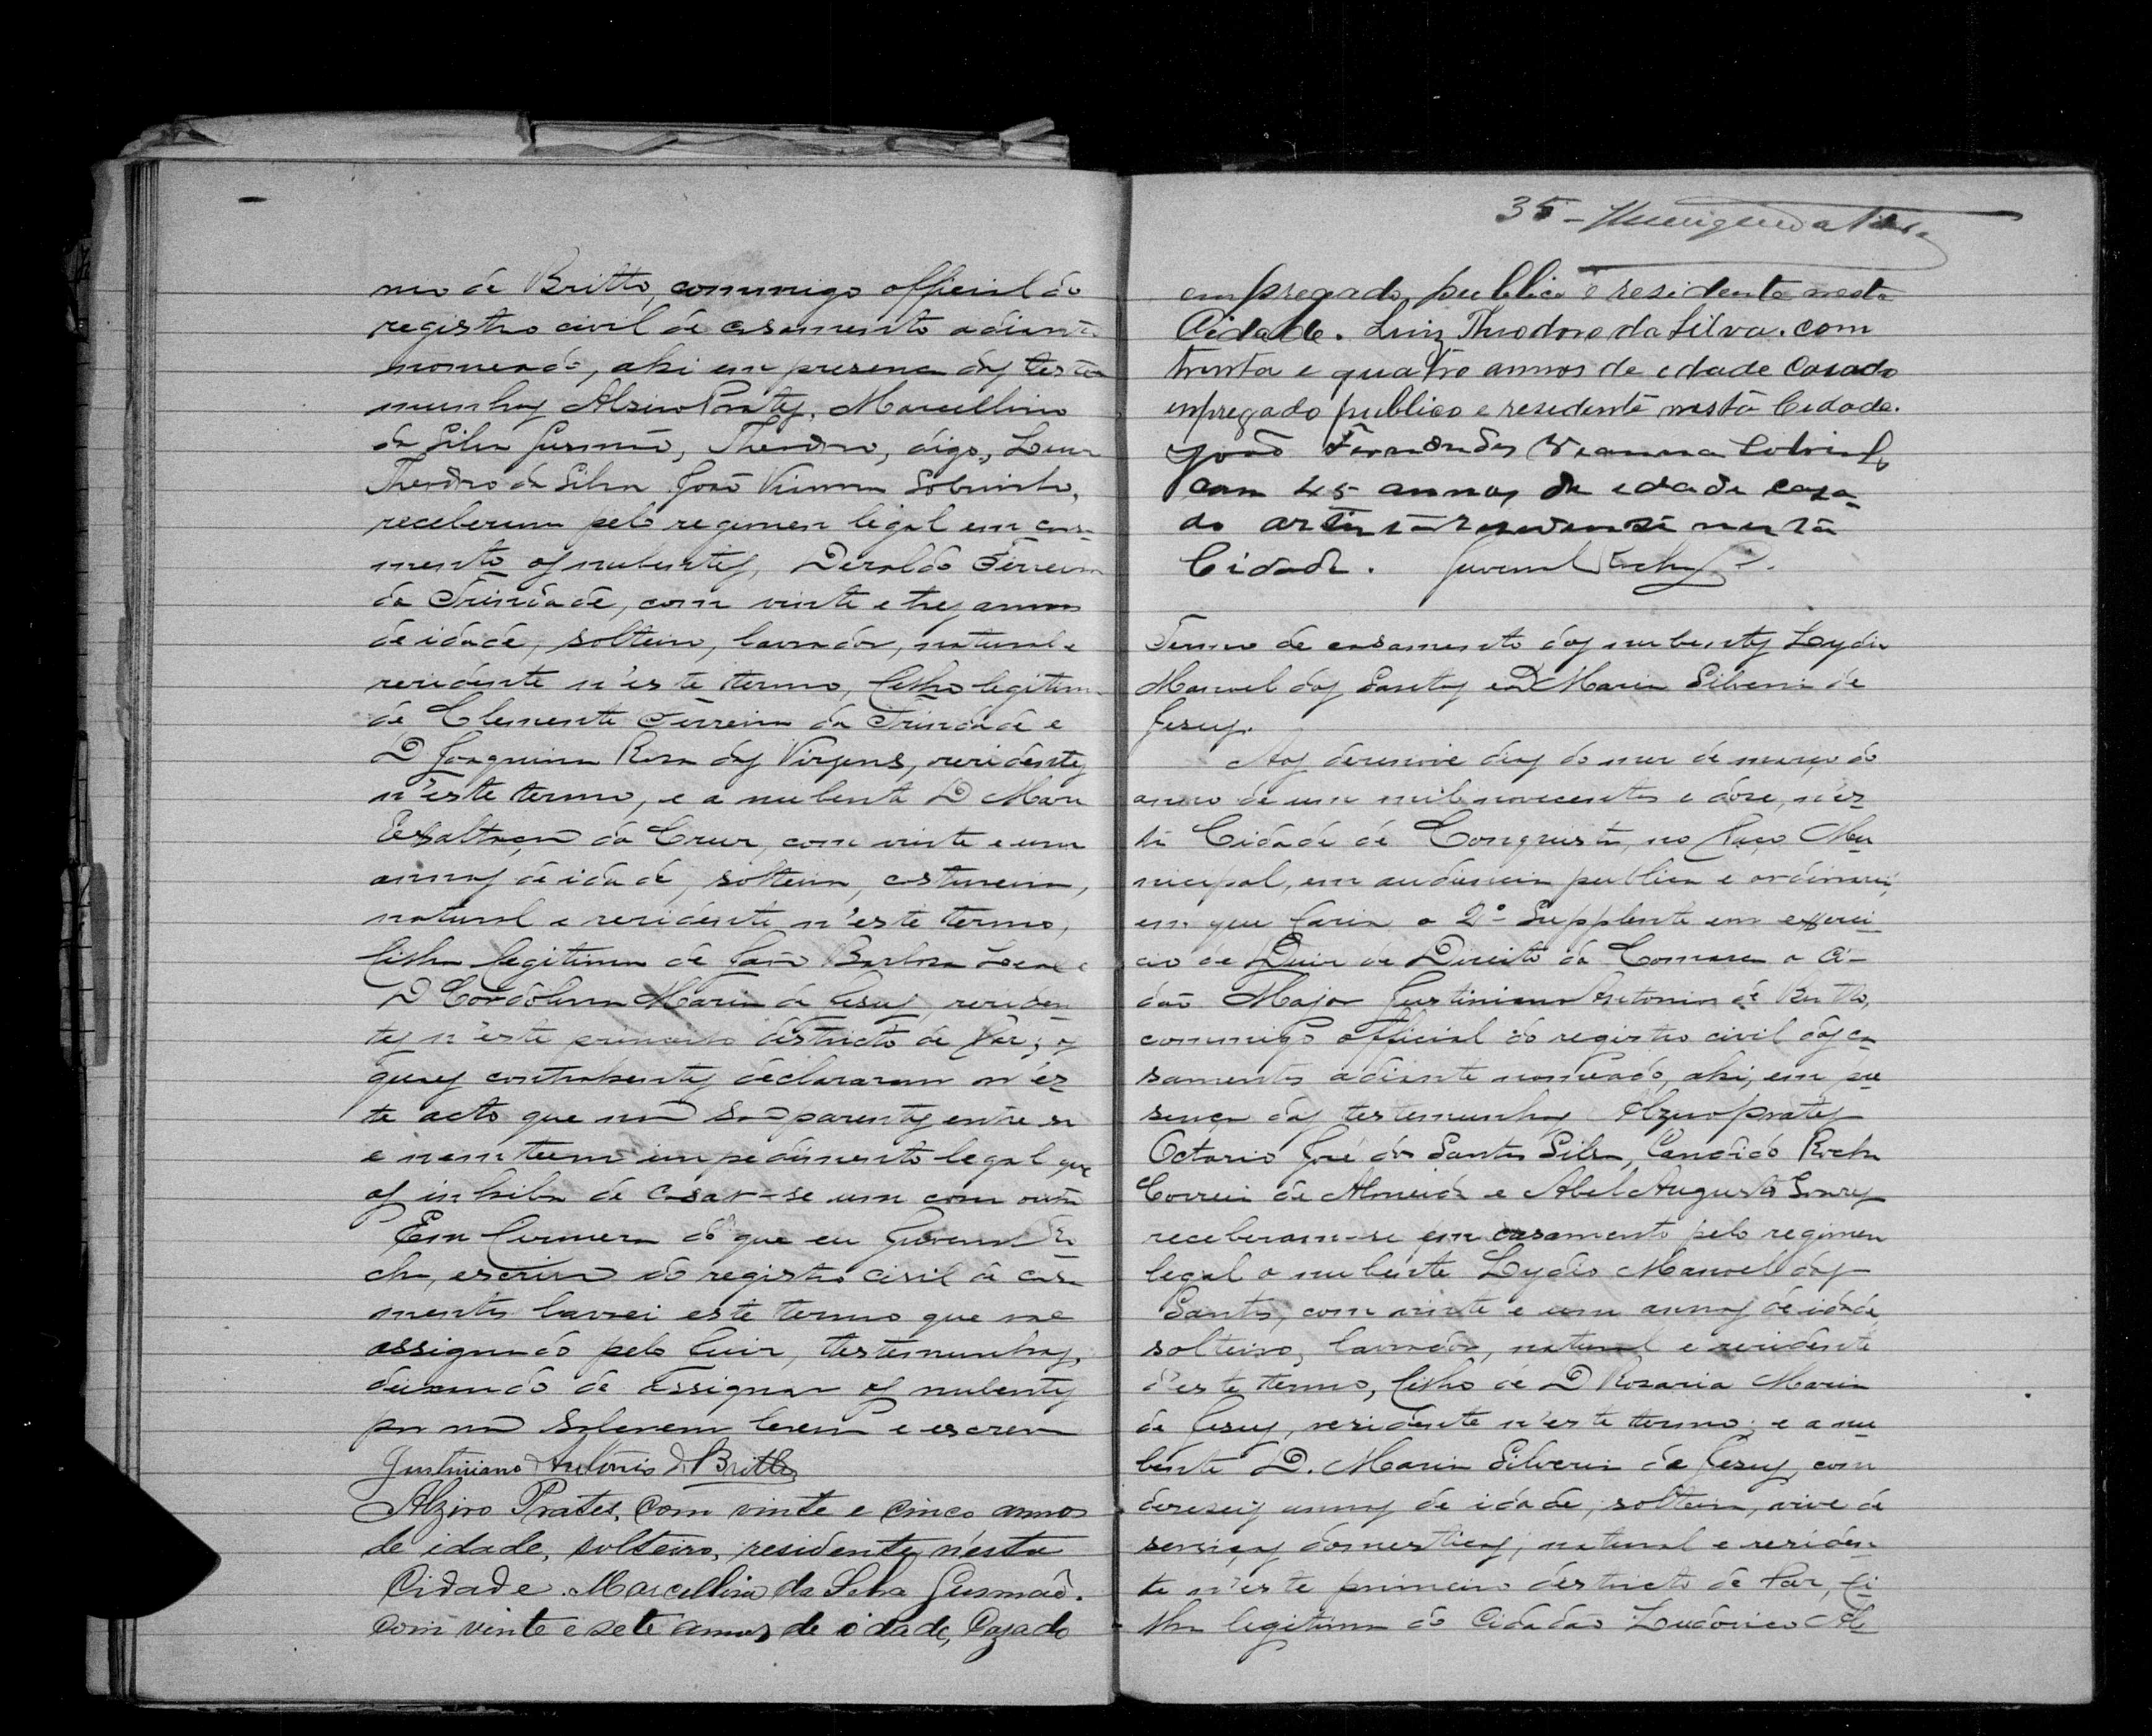 nio de Britto, commigo official do
registro civil de casamento adiante
nomeado, ahi em presença das teste
munhas Alziro Prates, Marcellino
da Silva Gusmão, Theodoro, digo, Luiz
Theodoro da Silva João Vianna Sobrinho,
receberam pelo regimen legal em casa-
mento os nubentes, Deraldo Ferreira
da Trindade, com vinte e tres annos
de idade, solteiro, lavrador, natural e
residente n'este termo, filho legitimo
de Clemente Ferreira da Trindade e
D Joaquina Rosa das Virgens, residentes
n'este termo, e a nubente D Maria
Exaltação da Cruz, com vinte e um
annos de idade, solteira, costureira,
natural e residente n'este termo,
filha legitima de João Barbosa Leal e
D Cordolina Maria de Jesus, residen-
tes n'este primeiro districto de Paz; os
quaes contrahentes declararam n'es-
te acto que não são parentes entre si
e nem teem impedimento legal que
os inhiba de casar-se um com outro
Em firmeza do que eu Juvenal Ro-
cha, escrivão do registro civil de casa
mentos lavrei este termo que vae
assignado pelo Juiz, testemunhas,
deixando de assignar os nubentes
por não saberem lerem e escrever
Justiniano Antonio de Britto
Alziro Prates, com vinte e cinco annos
de idade, solteiro, residente nesta
Cidade. Marcellino da Silva Gusmão.
com vinte e sete annos de idade, Cazado
35-
empregado publico e residente nesta
Cidade. Luiz Theodoro da Silva. com
trinta e quatro annos de edade Casado
empregado publico e residente nesta Cidade.
João Fernandes Vianna Sobrinho
com 45 annos de edade casa-
do artista residente nesta
Cidade. Juvenal Rocha
Termo de casamento dos nubentes Lydio
Manoel dos Santos e D Maria Silveria de
Jesus.
Aos desenove dias do mez de março do
anno de um mil novecentos e dose, n'es-
ta Cidade de Conquista, no Paço Mu-
nicipal, em audiencia publica e ordinaria,
em que fazia o 2º Supplente em exerci-
cio de Juiz de Direito da Comarca o Ci-
dão Major Justiniano Antonio de Britto,
commigo official do registro civil dos ca
samentos adiante nomeado, ahi, em pre
sença das testemunhas Alziro Prates
Octavio José dos Santos Silva, Candido Rocha
Correia de Almeida e Abel Augusto Soares
receberam-se em casamento pelo regimen
legal o nubente Lydio Manoel dos
Santos, com vinte e um annos de idade,
solteiro, lavrador, natural e residente
d'este termo, filho de D Rosaria Maria
de Jesus, residente n'este termo; e a nu
bente D. Maria Silveria de Jesus, com
deseseis annos de idade, solteira, vive de
serviços domesticos, natural e residen-
te n'este primeiro districto de Paz, fi-
lha legitima do Cidadão Ludovico Al-